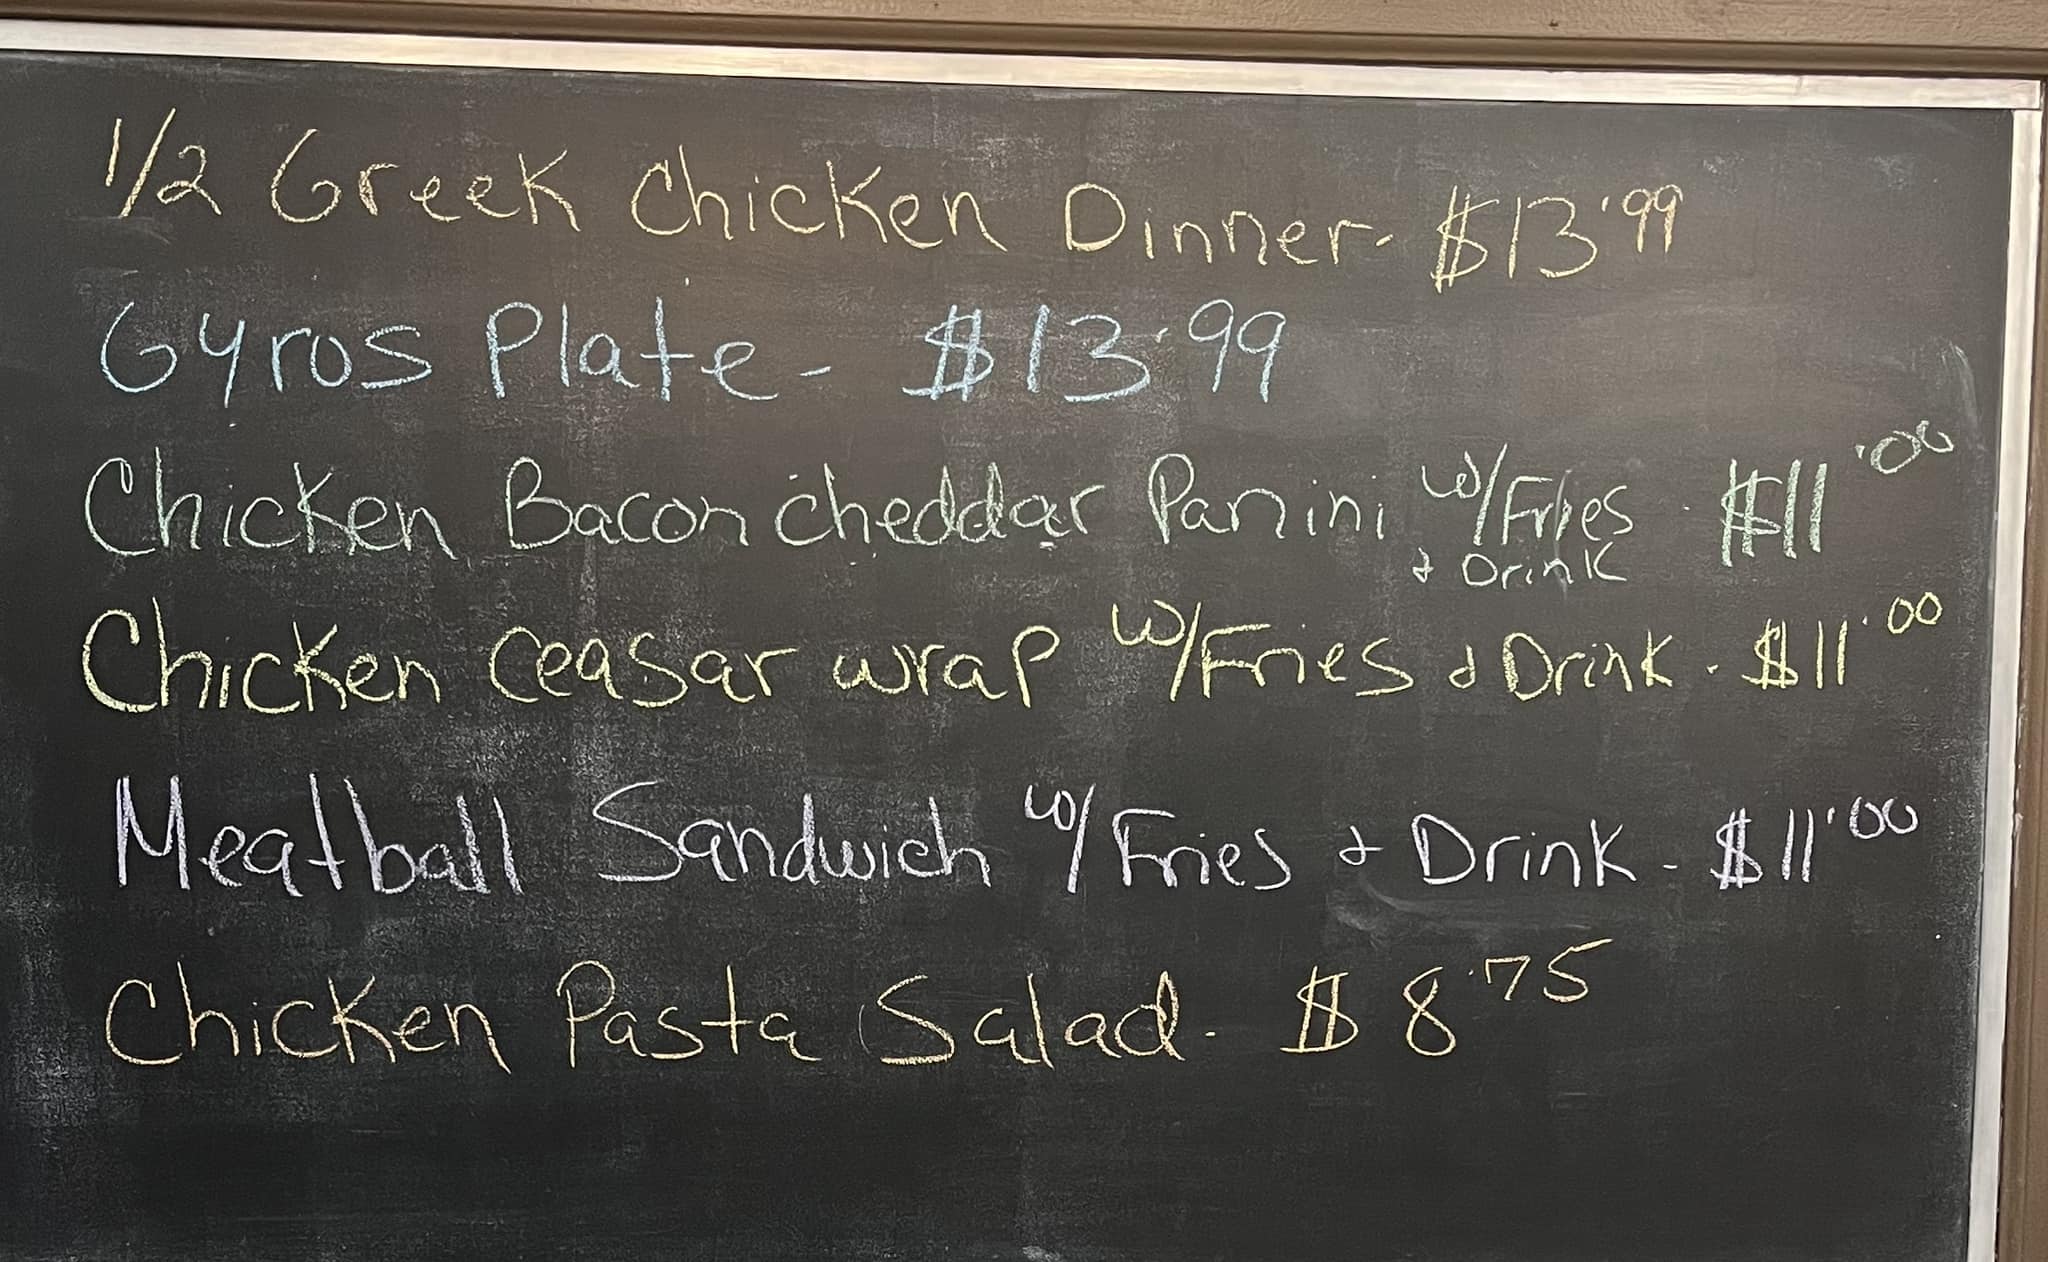 1/2 Greek Chicken Dinner- $13.99
Gyros Plate- $13.99
Chicken Bacon cheddar Panini w/Fries - $11.00
& Drink
Chicken Ceasar wrap w/Fries & Drink - $11.00
Meatball Sandwich w/Fries & Drink - $11.00
Chicken Pasta Salad - $8.75